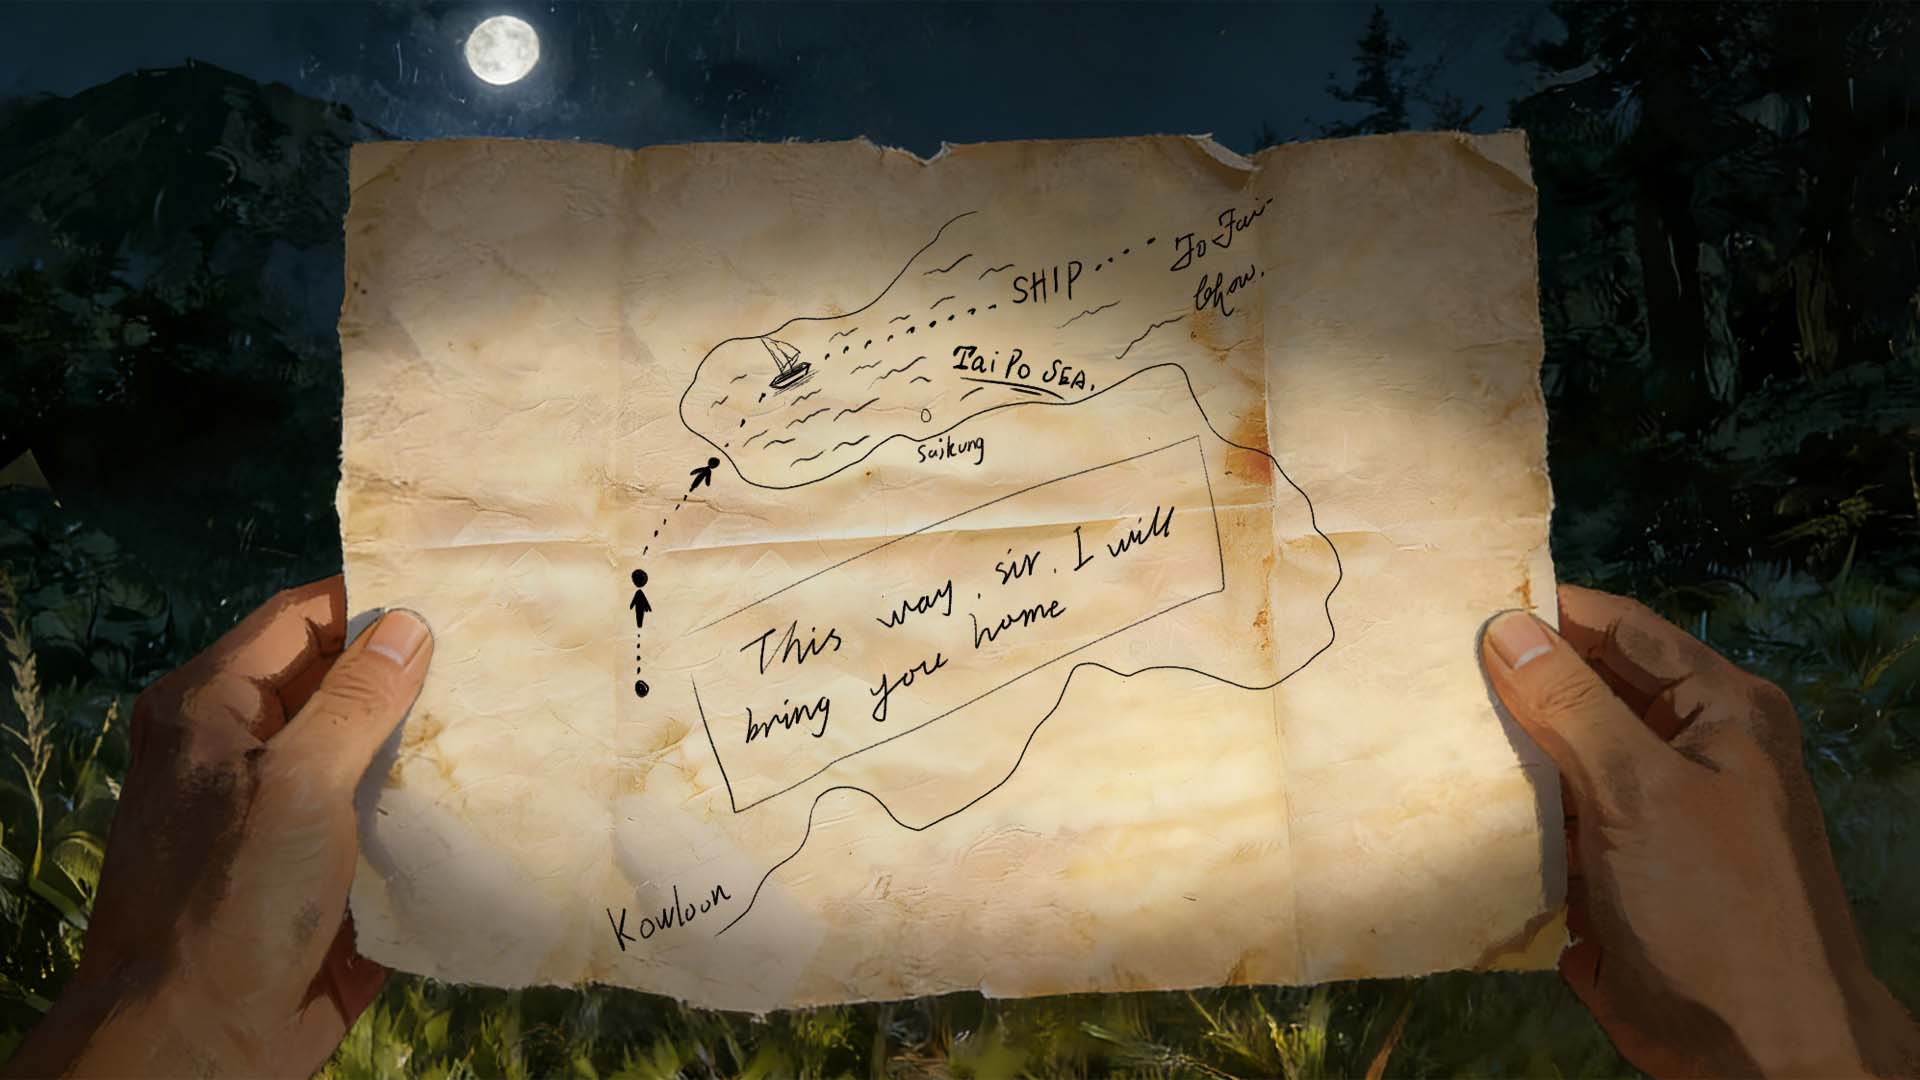 SHIP
To Fai-
Chow.
Tai Po SEA.
Saikung
This way, sir. I will
bring you home
Kowloon